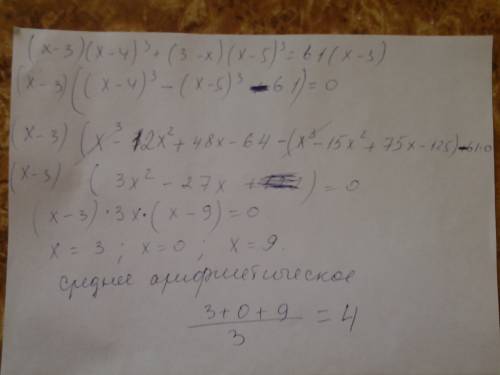 (x-3)(x-4)³+(3-x)(x-5)³=61(x-3)
(x-3)((x-4)³-(x-5)³-61)=0
(x-3)(x³-12x²+48x-64-(x³-15x²+75x-125)-61=0
(x-3)(3x²-27x)=0
(x-3)·3x·(x-9)=0
x=3; x=0; x=9.
среднее арифметическое
3+0+9
3
=4